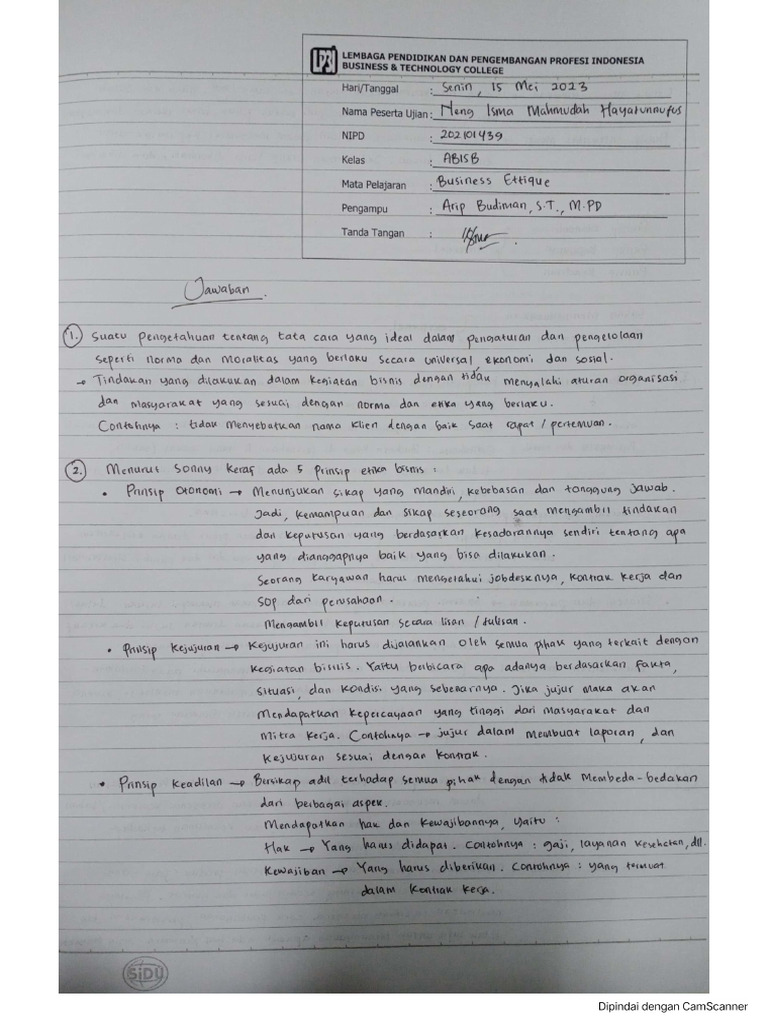 LP3I LEMBAGA PENDIDIKAN DAN PENGEMBANGAN PROFESI INDONESIA
BUSINESS & TECHNOLOGY COLLEGE
Hari/Tanggal : Senin, 15 Mei 2023
Nama Peserta Ujian : Neng Isma Mahmudah Hayatunnufus
NIPD : 202101439
Kelas : ABISB
Mata Pelajaran : Business Ettique
Pengampu : Arip Budiman, S.T., M.PD
Tanda Tangan :
Jawaban.
1. Suatu pengetahuan tentang tata cara yang ideal dalam pengaturan dan pengelolaan
seperti norma dan moralitas yang berlaku secara universal, ekonomi dan sosial.
→ Tindakan yang dilakukan dalam kegiatan bisnis dengan tidak menyalahi aturan organisasi
dan masyarakat yang sesuai dengan norma dan etika yang berlaku.
Contohnya : tidak menyebutkan nama klien dengan baik saat rapat / pertemuan.
2. Menurut Sonny Keraf ada 5 prinsip etika bisnis :
• Prinsip otonomi → Menunjukan sikap yang mandiri, kebebasan dan tanggung jawab.
Jadi, kemampuan dan sikap seseorang saat mengambil tindakan
dan keputusan yang berdasarkan kesadarannya sendiri tentang apa
yang dianggapnya baik yang bisa dilakukan.
Seorang karyawan harus mengetahui jobdesknya, kontrak kerja dan
SOP dari perusahaan.
Mengambil keputusan secara lisan / tulisan.
• Prinsip kejujuran → Kejujuran ini harus dijalankan oleh semua pihak yang terkait dengan
kegiatan bisnis. Yaitu berbicara apa adanya berdasarkan fakta,
situasi, dan kondisi yang sebenarnya. Jika jujur maka akan
mendapatkan kepercayaan yang tinggi dari masyarakat dan
mitra kerja. Contohnya → jujur dalam membuat laporan, dan
kejujuran sesuai dengan kontrak.
• Prinsip keadilan → Bersikap adil terhadap semua pihak dengan tidak membeda-bedakan
dari berbagai aspek.
Mendapatkan hak dan kewajibannya, yaitu :
Hak → Yang harus didapat. Contohnya : gaji, layanan kesehatan, dll.
Kewajiban → Yang harus diberikan. Contohnya : yang termuat
dalam kontrak kerja.
SiDU
Dipindai dengan CamScanner